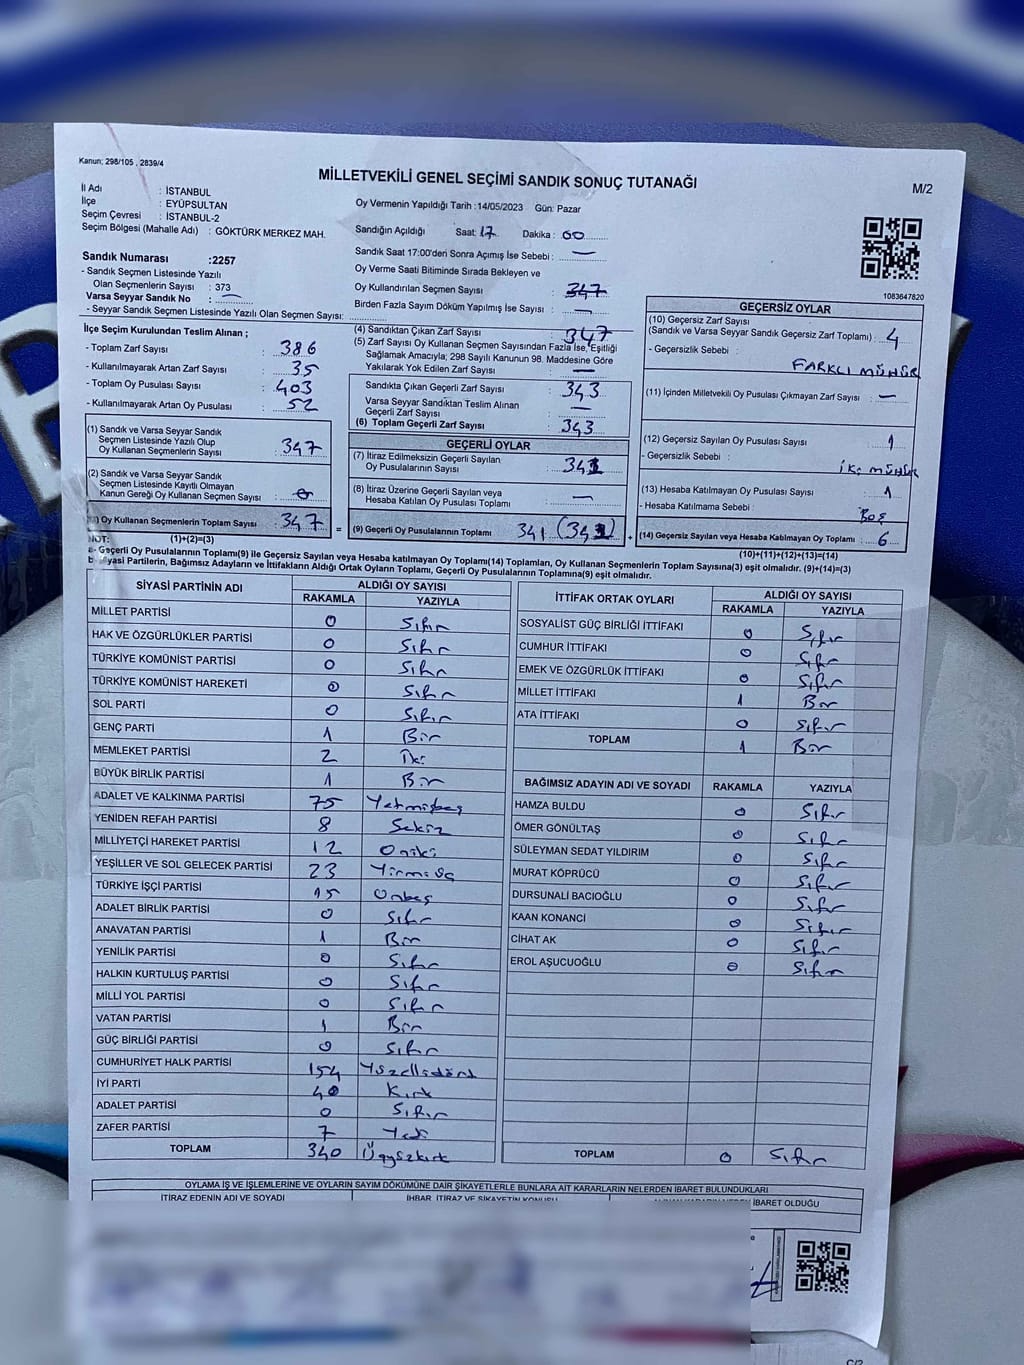 Kanun; 298/105 , 2839/4
MİLLETVEKİLİ GENEL SEÇİMİ SANDIK SONUÇ TUTANAĞI
M/2
İl Adı : İSTANBUL
İlçe : EYÜPSULTAN
Seçim Çevresi : İSTANBUL-2
Seçim Bölgesi (Mahalle Adı) : GÖKTÜRK MERKEZ MAH.
Sandık Numarası :2257
- Sandık Seçmen Listesinde Yazılı
Olan Seçmenlerin Sayısı : 373
Varsa Seyyar Sandık No : —
- Seyyar Sandık Seçmen Listesinde Yazılı Olan Seçmen Sayısı:
Oy Vermenin Yapıldığı Tarih : 14/05/2023 Gün: Pazar
Sandığın Açıldığı Saat: 17 Dakika : 00
Sandık Saat 17:00'deri Sonra Açımış İse Sebebi : —
Oy Verme Saati Bitiminde Sırada Bekleyen ve
Oy Kullandırılan Seçmen Sayısı : 347
Birden Fazla Sayım Döküm Yapılmış İse Sayısı : —
1083647820
İlçe Seçim Kurulundan Teslim Alınan ;
- Toplam Zarf Sayısı : 386
- Kullanılmayarak Artan Zarf Sayısı : 35
- Toplam Oy Pusulası Sayısı : 403
- Kullanılmayarak Artan Oy Pusulası : 52
(1) Sandık ve Varsa Seyyar Sandık
Seçmen Listesinde Yazılı Olup
Oy Kullanan Seçmenlerin Sayısı : 347
(2) Sandık ve Varsa Seyyar Sandık
Seçmen Listesinde Kayıtlı Olmayan
Kanun Gereği Oy Kullanan Seçmen Sayısı : 0
Oy Kullanan Seçmenlerin Toplam Sayısı : 347
(1)+(2)=(3)
(4) Sandıktan Çıkan Zarf Sayısı : 347
(5) Zarf Sayısı Oy Kullanan Seçmen Sayısından Fazla İse, Eşitliği
Sağlamak Amacıyla; 298 Sayılı Kanunun 98. Maddesine Göre
Yakılarak Yok Edilen Zarf Sayısı : —
Sandıkta Çıkan Geçerli Zarf Sayısı : 343
Varsa Seyyar Sandıktan Teslim Alınan
Geçerli Zarf Sayısı : —
(6) Toplam Geçerli Zarf Sayısı : 343
GEÇERLİ OYLAR
(7) İtiraz Edilmeksizin Geçerli Sayılan
Oy Pusulalarının Sayısı : 341
(8) İtiraz Üzerine Geçerli Sayılan veya
Hesaba Katılan Oy Pusulası Toplamı : —
= (9) Geçerli Oy Pusulalarının Toplamı : 341 (341) +
GEÇERSİZ OYLAR
(10) Geçersiz Zarf Sayısı
(Sandık ve Varsa Seyyar Sandık Geçersiz Zarf Toplamı) : 4
- Geçersizlik Sebebi :
FARKLI MÜHÜR
(11) İçinden Milletvekili Oy Pusulası Çıkmayan Zarf Sayısı : —
(12) Geçersiz Sayılan Oy Pusulası Sayısı : 1
- Geçersizlik Sebebi :
İKİ MÜHÜR
(13) Hesaba Katılmayan Oy Pusulası Sayısı : 1
- Hesaba Katılmama Sebebi :
BOŞ
(14) Geçersiz Sayılan veya Hesaba Katılmayan Oy Toplamı : 6
(10)+(11)+(12)+(13)=(14)
NOT:
a- Geçerli Oy Pusulalarının Toplamı(9) ile Geçersiz Sayılan veya Hesaba katılmayan Oy Toplamı(14) Toplamları, Oy Kullanan Seçmenlerin Toplam Sayısına(3) eşit olmalıdır. (9)+(14)=(3)
b- Siyasi Partilerin, Bağımsız Adayların ve İttifakların Aldığı Ortak Oyların Toplamı, Geçerli Oy Pusulalarının Toplamına(9) eşit olmalıdır.
SİYASİ PARTİNİN ADI ALDIĞI OY SAYISI
RAKAMLA YAZIYLA
MİLLET PARTİSİ 0 Sıfır
HAK VE ÖZGÜRLÜKLER PARTİSİ 0 Sıfır
TÜRKİYE KOMÜNİST PARTİSİ 0 Sıfır
TÜRKİYE KOMÜNİST HAREKETİ 0 Sıfır
SOL PARTİ 0 Sıfır
GENÇ PARTİ 1 Bir
MEMLEKET PARTİSİ 2 İki
BÜYÜK BİRLİK PARTİSİ 1 Bir
ADALET VE KALKINMA PARTİSİ 75 Yetmişbeş
YENİDEN REFAH PARTİSİ 8 Sekiz
MİLLİYETÇİ HAREKET PARTİSİ 12 Oniki
YEŞİLLER VE SOL GELECEK PARTİSİ 23 Yirmi üç
TÜRKİYE İŞÇİ PARTİSİ 15 Onbeş
ADALET BİRLİK PARTİSİ 0 Sıfır
ANAVATAN PARTİSİ 1 Bir
YENİLİK PARTİSİ 0 Sıfır
HALKIN KURTULUŞ PARTİSİ 0 Sıfır
MİLLİ YOL PARTİSİ 0 Sıfır
VATAN PARTİSİ 1 Bir
GÜÇ BİRLİĞİ PARTİSİ 0 Sıfır
CUMHURİYET HALK PARTİSİ 154 Yüzellidört
İYİ PARTİ 40 Kırk
ADALET PARTİSİ 0 Sıfır
ZAFER PARTİSİ 7 Yedi
TOPLAM 340 Üçyüzkırk
İTTİFAK ORTAK OYLARI ALDIĞI OY SAYISI
RAKAMLA YAZIYLA
SOSYALİST GÜÇ BİRLİĞİ İTTİFAKI 0 Sıfır
CUMHUR İTTİFAKI 0 Sıfır
EMEK VE ÖZGÜRLÜK İTTİFAKI 0 Sıfır
MİLLET İTTİFAKI 1 Bir
ATA İTTİFAKI 0 Sıfır
TOPLAM 1 Bir
BAĞIMSIZ ADAYIN ADI VE SOYADI RAKAMLA YAZIYLA
HAMZA BULDU 0 Sıfır
ÖMER GÖNÜLTAŞ 0 Sıfır
SÜLEYMAN SEDAT YILDIRIM 0 Sıfır
MURAT KÖPRÜCÜ 0 Sıfır
DURSUNALİ BACIOĞLU 0 Sıfır
KAAN KONANCİ 0 Sıfır
CİHAT AK 0 Sıfır
EROL AŞUCUOĞLU 0 Sıfır
TOPLAM 0 Sıfır
OYLAMA İŞ VE İŞLEMLERİNE VE OYLARIN SAYIM DÖKÜMÜNE DAİR ŞİKAYETLERLE BUNLARA AİT KARARLARIN NELERDEN İBARET BULUNDUKLARI
İTİRAZ EDENİN ADI VE SOYADI İHBAR, İTİRAZ VE ŞİKAYETİN KONUSU İBARET OLDUĞU